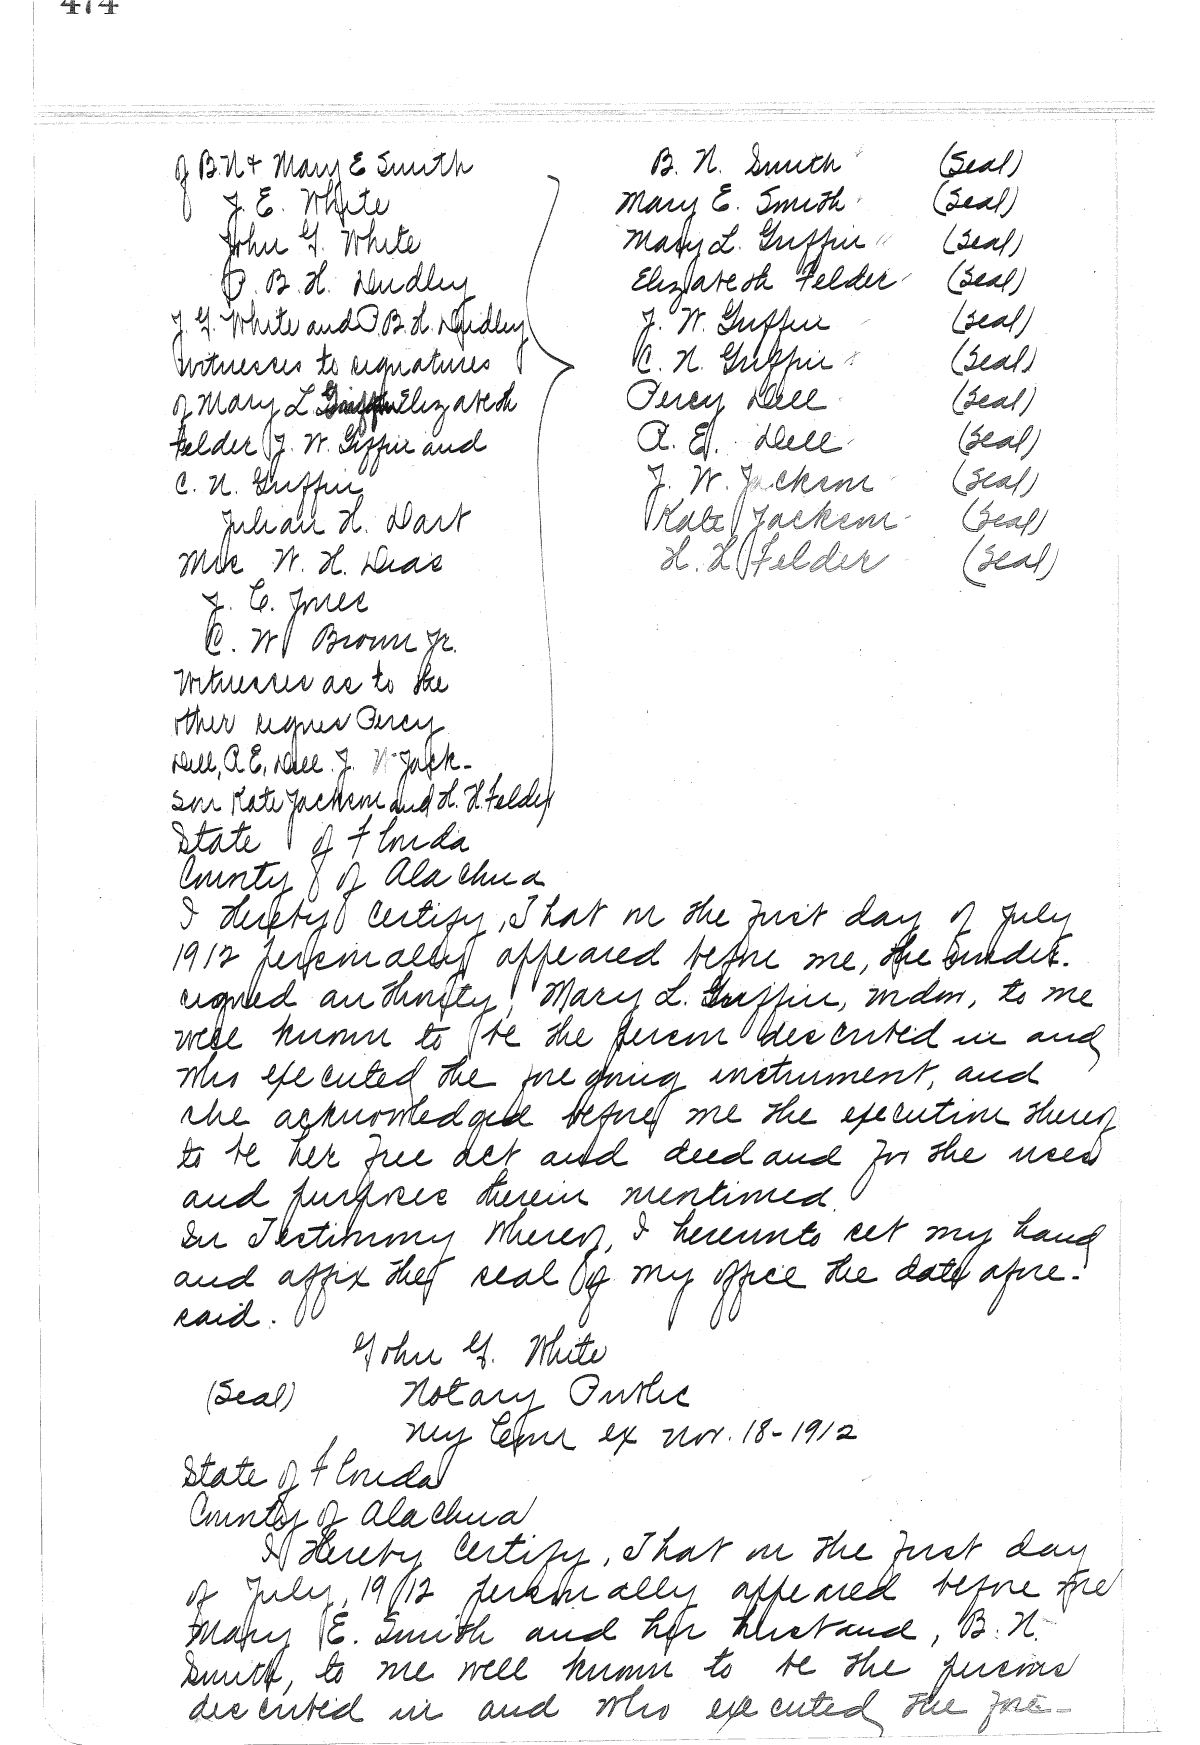 474
of B. N & Mary E Smith
J. E. White
John G. White
P. B. H. Dudley
J. G. White and P. B. H. Dudley
Witnesses to signatures
of Mary L Griffin Elizabeth
Felder J. W. Giffin and
C. N. Griffin
Julian H. Dart
Mrs W. H. Dias
J. C. Jones
C. W. Brown Jr.
Witnesses as to the
other signes Percy
Dell, A. E, Dell J. W Jack-
son Kate Jackson and H. H. Felder
B. N. Smith (Seal)
Mary E. Smith (Seal)
Mary L. Griffin (Seal)
Elizabeth Felder (Seal)
J. W. Griffin (Seal)
C. N. Griffin (Seal)
Percy Dell (Seal)
A. E. Dell (Seal)
J. W. Jackson (Seal)
Kate Jackson (Seal)
H. H Felder (Seal)
State of Florida
County of Alachua
I Hereby Certify, That on the first day of July
1912 personally appeared before me, the under-
signed authority, Mary L. Griffin, widow, to me
well known to be the person described in and
who executed the foregoing instrument, and
she acknowledged before me the execution thereof
to be her free act and deed and for the uses
and purposes therein mentioned.
In Testimony Whereof, I hereunto set my hand
and affix the seal of my office the date afore-
said.
John G. White
(Seal) Notary Public
My Com ex Nov. 18-1912
State of Florida
County of Alachua
I Hereby Certify, That on the first day
of July, 1912 personally appeared before me
Mary E. Smith and her husband, B. N.
Smith, to me well known to be the persons
described in and who executed the fore-